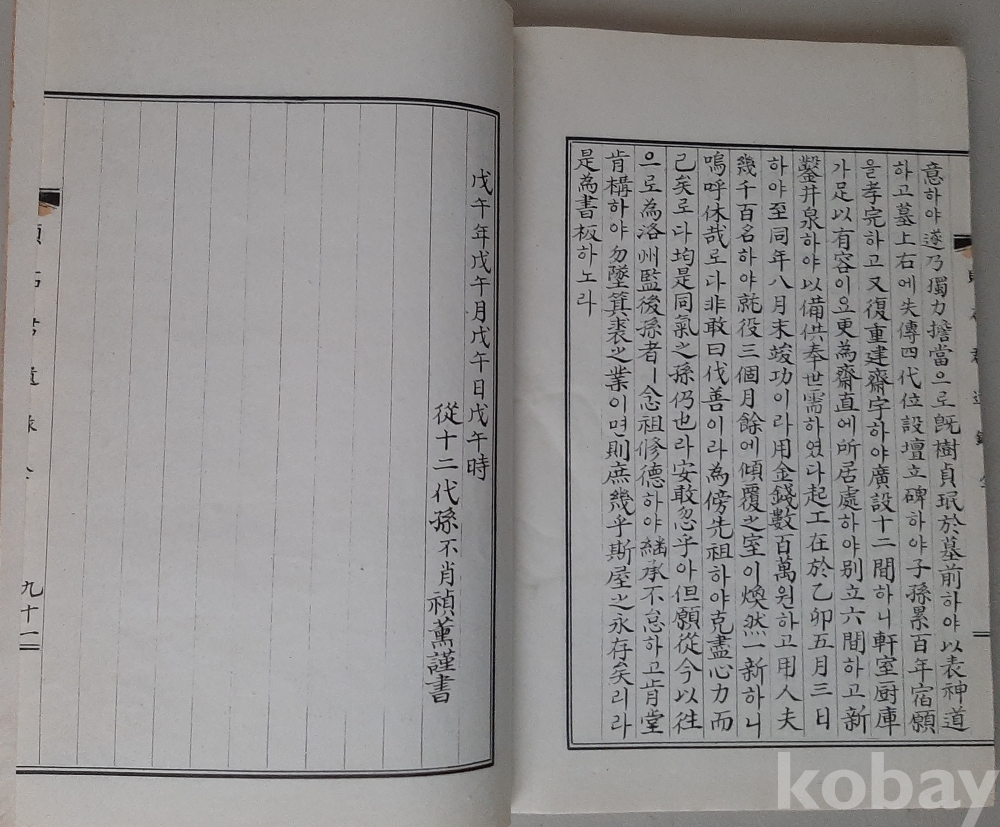 意하야遂乃獨力擔當으로旣樹貞珉於墓前하야以表神道
하고墓上右에失傳四代位設壇立碑하야子孫累百年宿願
을孝完하고又復重建齋宇하야廣設十二間하니軒室厨庫
가足以有容이요更為齋直에所居處하야别立六間하고新
鑿井泉하야以備供奉世需하였다起工在於乙卯五月三日
하야至同年八月末竣功이라用金錢數百萬원하고用人夫
幾千百名하야就役三個月餘에傾覆之室이煥然一新하니
嗚呼休哉로다非敢曰伐善이라為傍先祖하야克盡心力而
已矣로다均是同氣之孫仍也라安敢忽乎아但願從今以往
으로為洛州監後孫者ㅣ念祖修德하야継承不怠하고肯堂
肯構하야勿墜箕裘之業이면則庶幾乎斯屋之永存矣리라
是為書板하노라
戊午年戊午月戊午日戊午時
從十二代孫不肖禎薰謹書
九十一
kobay